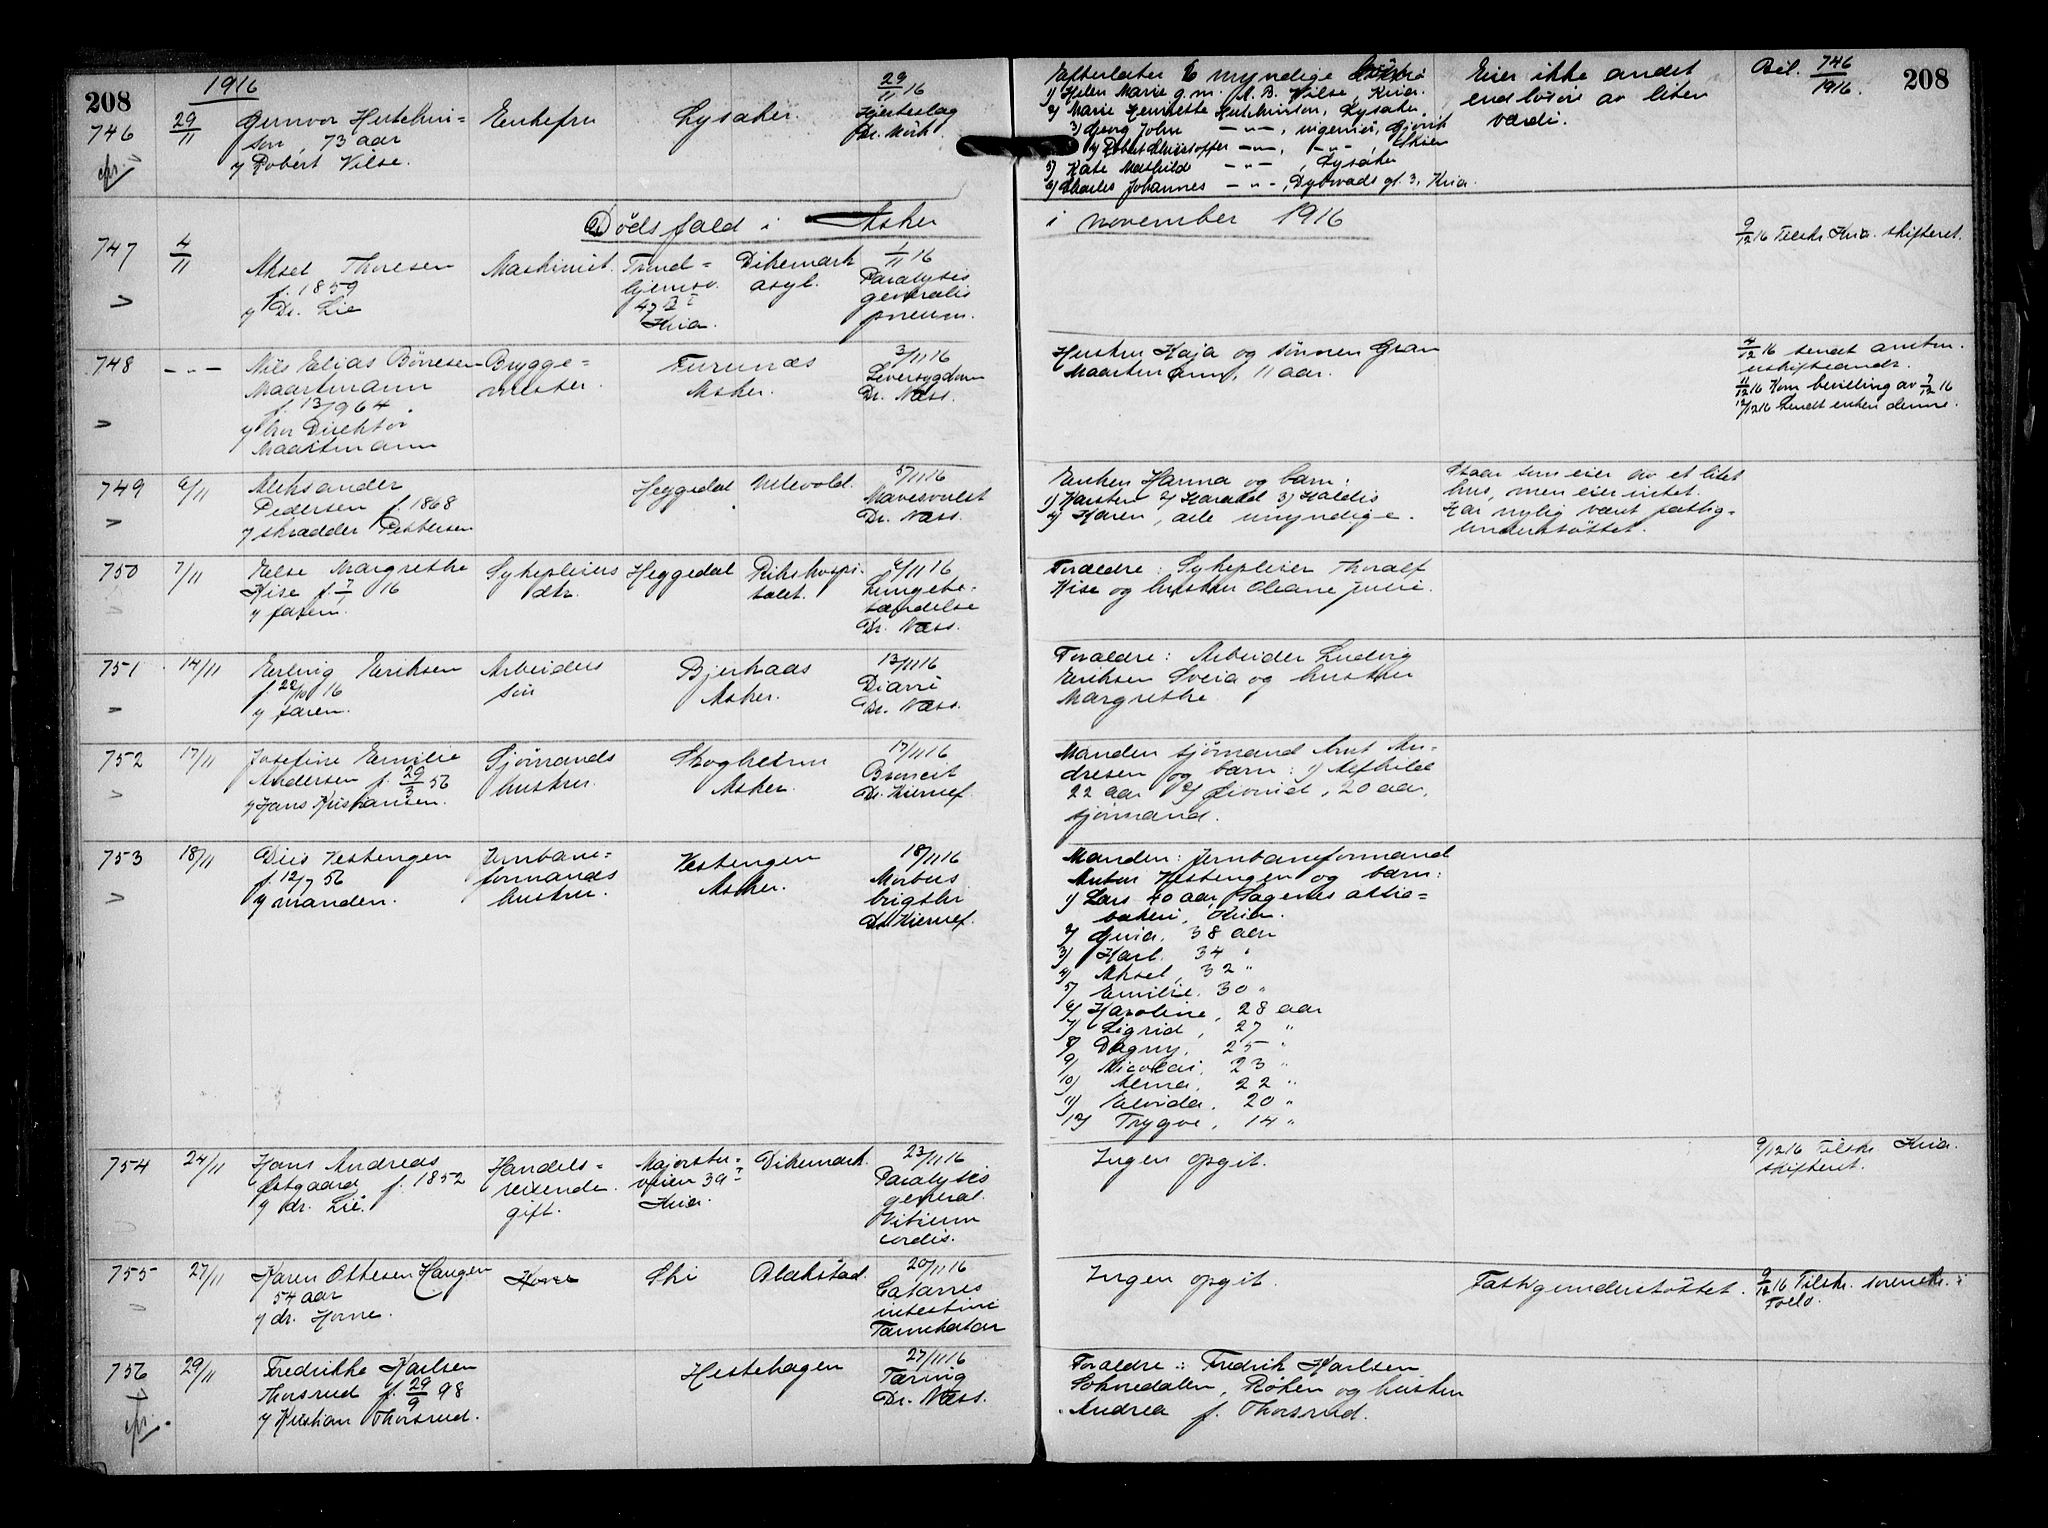 208
1916
746
29/11
Gunvor Hutchin=
son, 73 aar
v/ Robert Vilse.
Enkefru
Lysaker.
29/11 16
Hjerteslag
Dr. Mörk.
Efterlater 6 myndige
1) Helen Marie g.m. A. B. Vilse, Kria.
2) Marie Henriette Hutchinson, Lysaker
3) Georg John -"-, ingeniör, Gjövik
4) Robert Christoffer -"-, -"-, Skien
5) Kate Mathilde -"-, Lysaker
6) Charles Johannes -"-, Dybwads gt. 3, Kria.
Eier ikke andet
end lösöre av liten
værdi.
Bil. 746/1916.
208
Dödsfald i Asker
i november 1916
747
4/11
Aksel Thoresen
f. 1859
v/ Dr. Lie
Maskinist.
Trond=
hjemsv.
Kria.
Dikemark
asyl.
1/11 16
Paralysis
generalis
pneum.
9/12 16 Tilskr. Kria. skifteret.
748
-"-
Nils Elias Börresen
Maartmann
f. 13/9 64.
v/ bror Direktör
Maartmann
Brygge=
mester.
Furunæs
Asker.
3/11 16
Leversygdom
Dr. Næss.
Hustru Kaja og sönnen Gran
Maartmann, 11 aar.
4/12 16 sendt amtm.
uskifteandr.
11/12 16 Kom bevilling av 7/12 16
12/12 16 Sendt enken denne.
749
6/11
Aleksander
Pedersen f. 1868
v/ skrædder Pettersen
Heggedal
Ullevold.
5/11 16
Mavesvulst
Dr. Næss.
Enken Hanna og barn:
1) Karsten 2) Harald 3) Haldis
4) Karen, alle umyndige.
Staar som eier av et litet
hus, men eier intet.
Har nylig været fattig=
understöttet.
750
7/11
Else Margrethe
Kise f. 7/ 16
v/ faren.
Sykepleiers
dtr.
Heggedal
Rikshospi-
talet.
6/11 16
Lungebe-
tændelse
Dr. Næss.
Forældre: Sykepleier Thoralf
Kise og hustru Oleane
751
14/11
Erling Eriksen
f. 22/10 16
v/ faren.
Arbeiders
sön
Bjerkaas
Asker.
13/11 16
Diarré
Dr. Næss.
Forældre: Arbeider Ludvig
Eriksen Sveia og hustru
Margrethe.
752
17/11
Josefine Emilie
Andersen f. 29/3 56
v/ Hans Kristiansen.
Sjömands
hustru.
Skogheim
Asker.
17/11 16
Dr. Kiernef.
Manden sjömand Knut An-
dresen og barn: 1) Alfhild
22 aar 2) Eivind, 20 aar,
sjömand.
753
18/11
Diis Vestengen
f. 12/7 56
v/ manden.
Jernbane=
formands
hustru.
Vestengen
Asker.
18/11 16
Morbus
brigthi
Dr. Kiernef.
Manden: Jernbaneformand
Anton Vestengen og barn:
1) Lars 40 aar, Sagenes aktie=
bakeri, Kria.
2) Gina. 38 aar
3) Karl. 34 "
4) Aksel, 32 "
5) Emilie. 30 "
6) Karoline, 28 aar
7) Sigrid, 27 "
8) Dagny, 25 "
9) Nicolai, 23 "
10) Alma, 22 "
11) Elvida, 20 "
12) Trygve, 14 "
754
24/11
Hans Andreas
Östgaard f. 1852
v/ dr. Lie.
Handels=
reisende
gift.
Majorstu-
veien 39
Kria.
Dikemark.
23/11 16
Paralysis
general.
Vitium
cordis.
Ingen opgit.
9/12 16 Tilskr. Kria.
skifteret.
755
27/11
Karen Ottesen Haugen
54 aar
v/ dr. Horne.
Ski
Blakstad.
20/11 16
Catarres
intestini
Tarmkatar
Ingen opgit.
Fattigunderstöttet.
9/12 16 Tilskr. sorenskr. i
Follo.
756
29/11
Fredrikke Karlsen
Thorsrud f. 29/9 98
v/ Kristian Thorsrud.
Hestehagen
27/11 16
Tæring
Dr. Næss.
Forældre: Fredrik Karlsen
Soknedalen, Röken og hustru
Andrea f. Thorsrud.